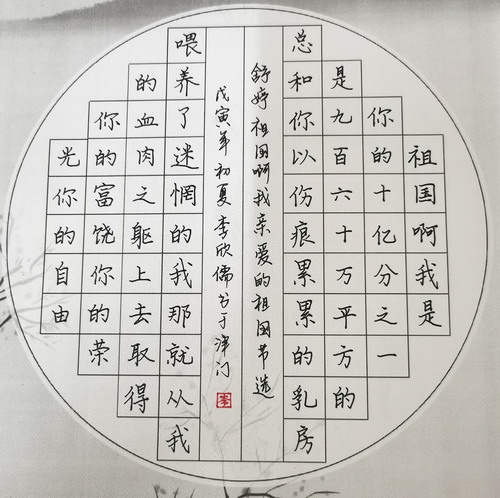 祖国啊我是
你的十亿分之一
是九百六十万平方的
总和你以伤痕累累的乳房
喂养了迷惘的我那就从我
的血肉之躯上去取得
你的富饶你的荣
光你的自由
舒婷祖国啊我亲爱的祖国节选
戊寅年初夏李欣儒书于津门